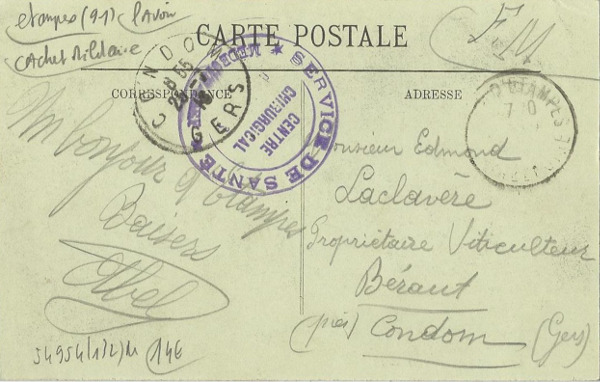 etampes (91) lavoir
cachet Militaire
CARTE POSTALE
FM
CORRESPONDANCE
ADRESSE
CONDOM
GERS
SERVICE DE SANTÉ
CENTRE
CHIRURGICAL
D'ETAMPES
Un bonjour d'Etampes
Baisers
Abel
Monsieur Edmond
Laclavère
Propriétaire Viticulteur
Béraut
(près) Condom (Gers)
54954(132)M 14€